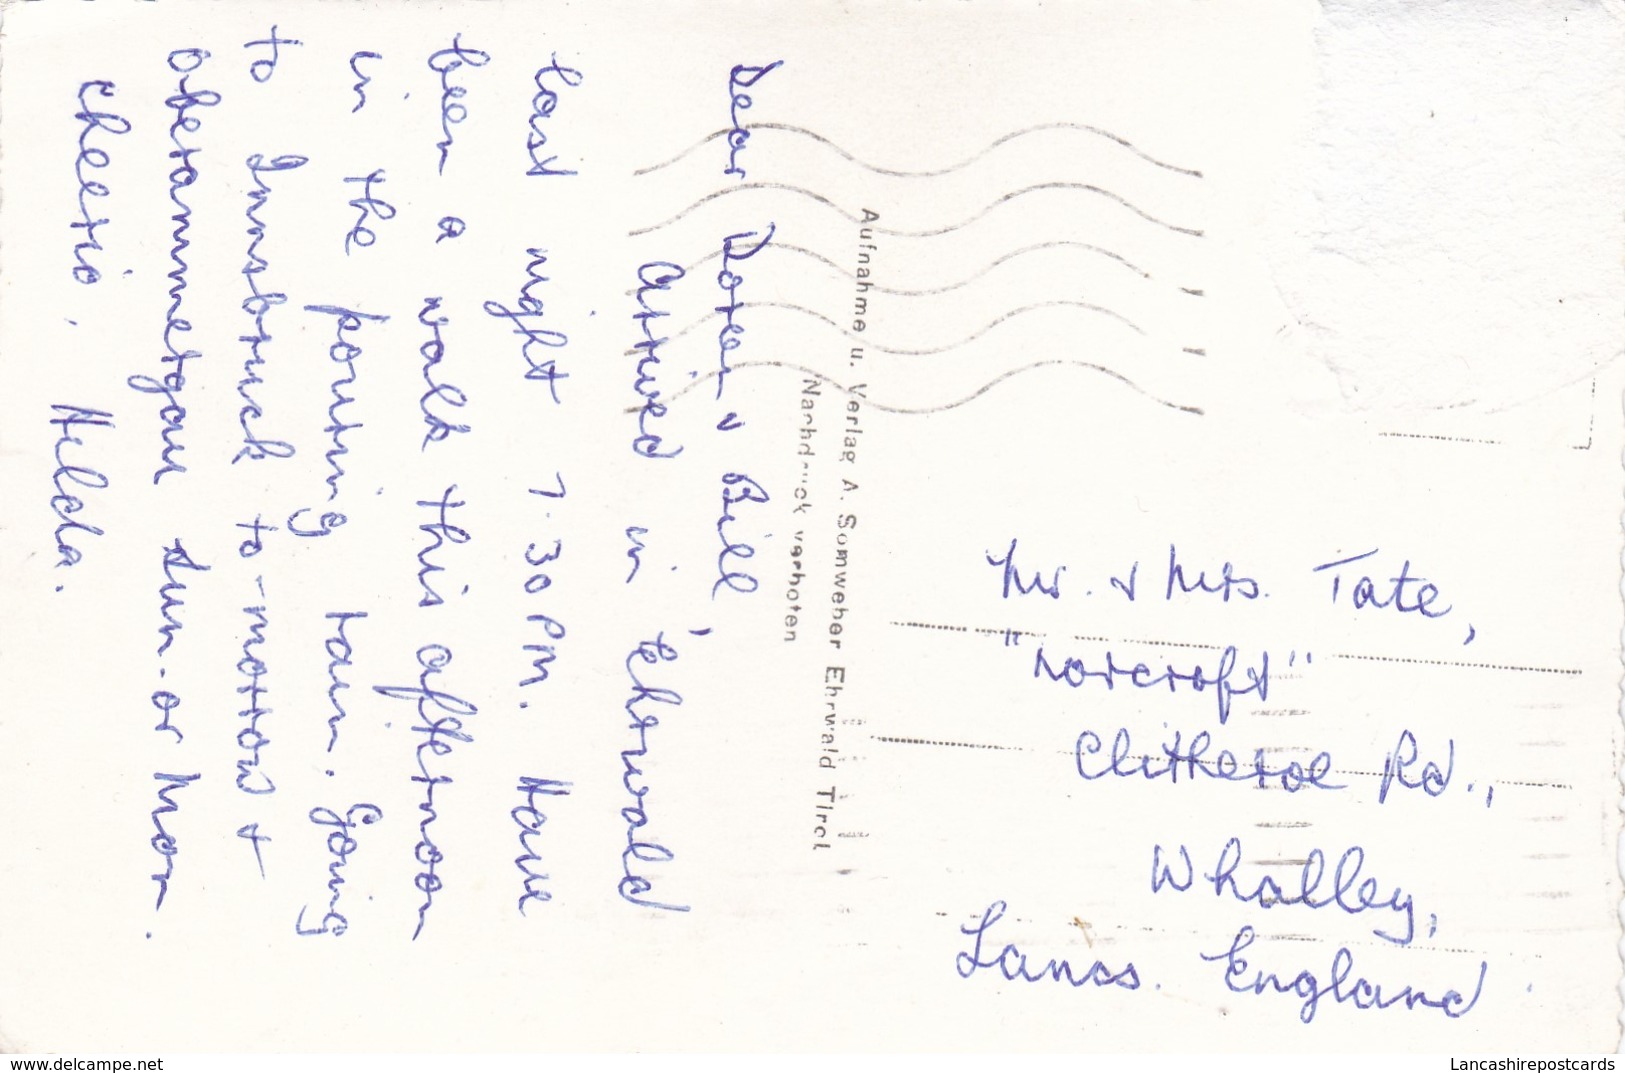 Dear Doreen & Bill,
Arrived in Ehrwald
last night 7.30 PM. Have
been a walk this afternoon
in the pouring rain. Going
to Innsbruck to-morrow &
oberammergau sun. or Mon.
cheerio. Hilda.
Aufnahme u. Verlag A. Somweber Ehrwald Tirol
Nachdruck verboten
Mr. & Mrs. Tate,
"Norcroft"
Clitheroe Rd.,
Whalley,
Lancs. England
www.delcampe.net
Lancashirepostcards